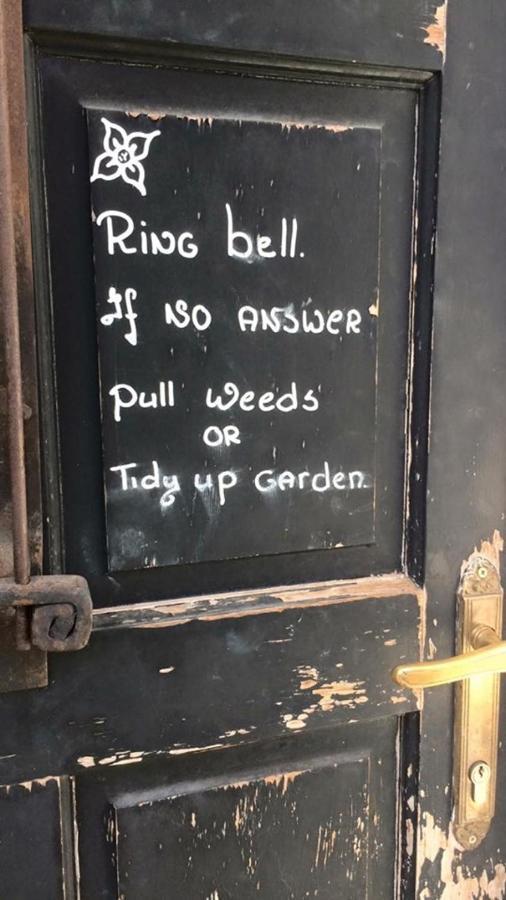 Ring bell.
If no answer
pull weeds
or
Tidy up garden.